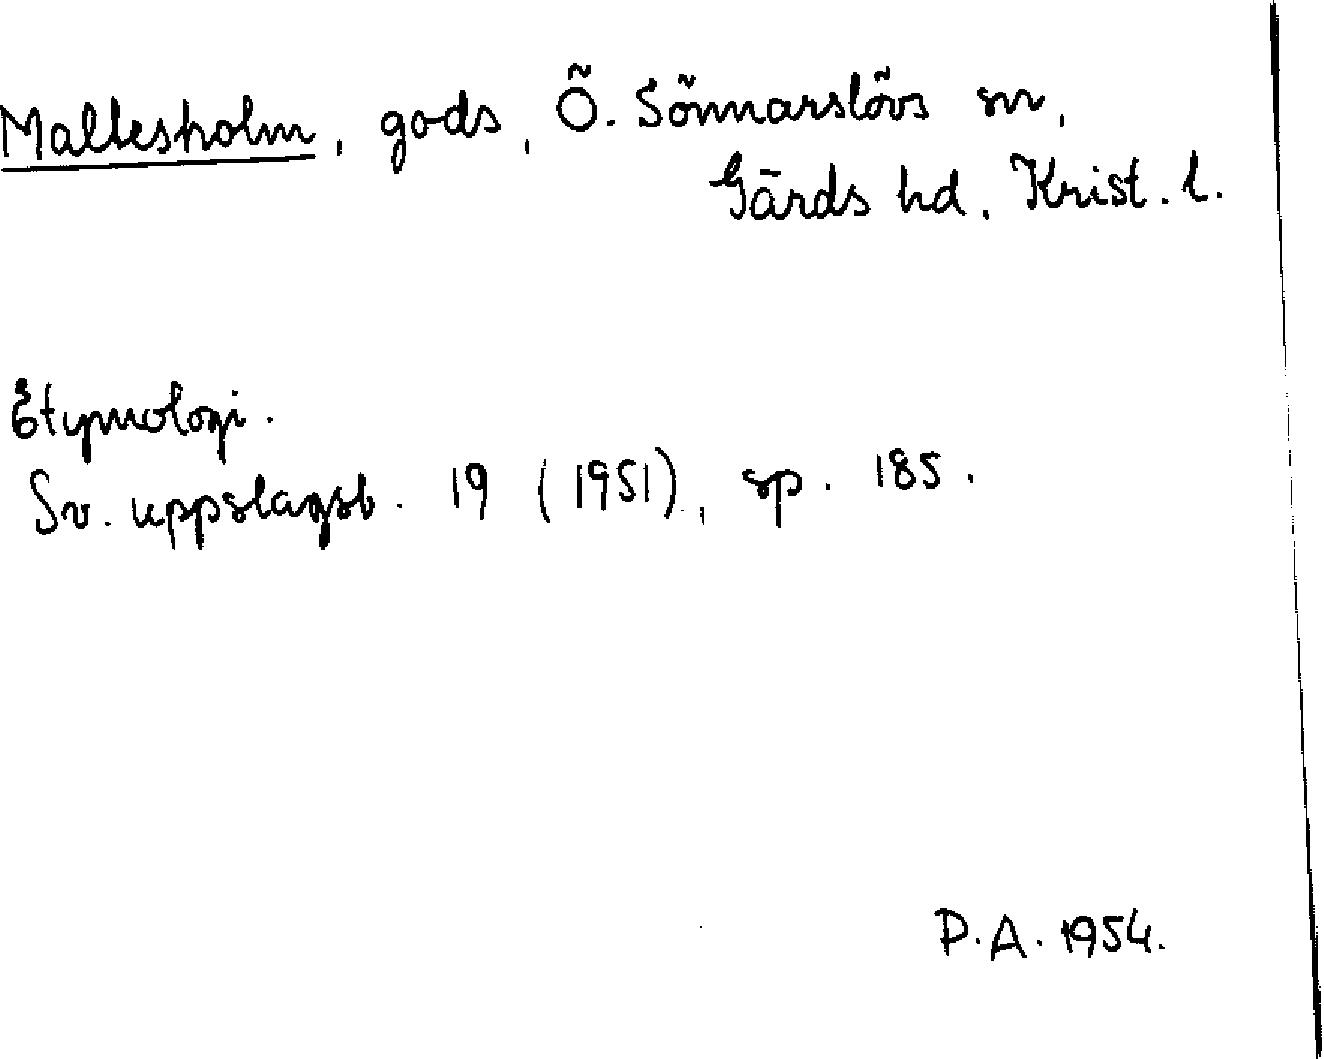 Maltesholm, gods, Ö. Sönnarslövs sn,
Gärds hd, Krist. l.
Etymologi.
Sv. uppslagsb. 19 (1951), sp. 185.
P.A. 1954.